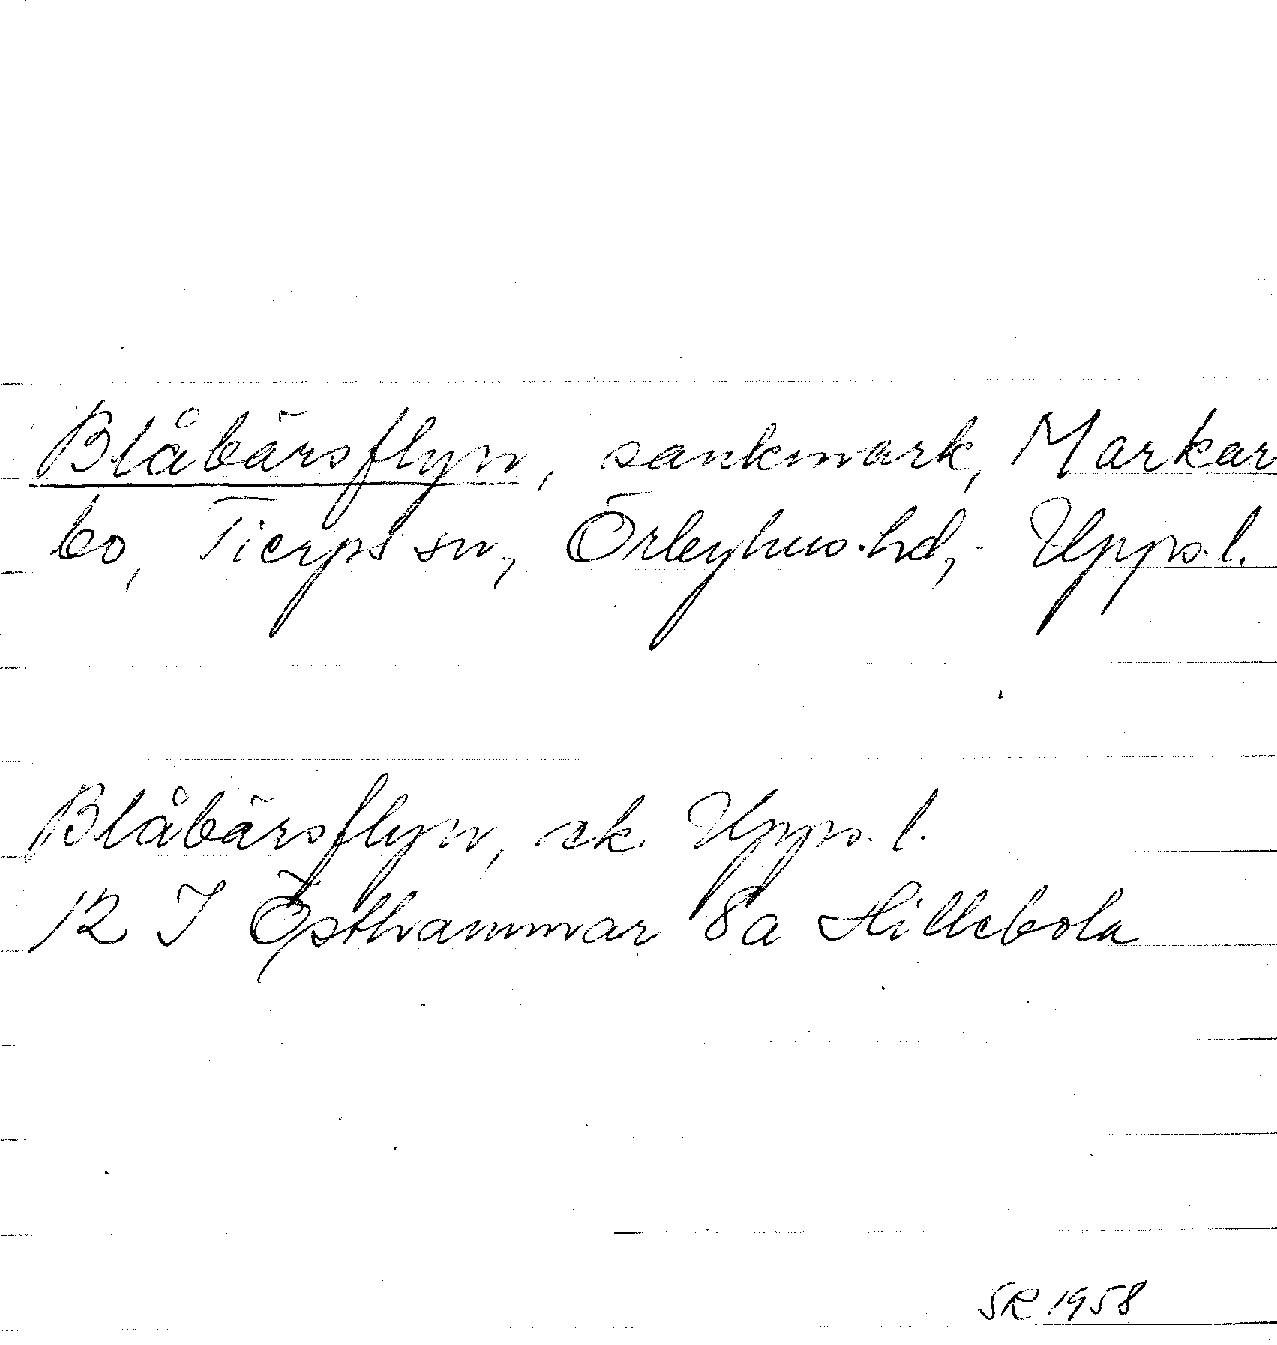 Blåbärsflyn, sankmark, Markar
bo, Tierps sn, Örbyhus hd, Upps. l.
Blåbärsflyn, sk. Upps. l.
12 I Östhammar 8a Hillebola
SR 1958